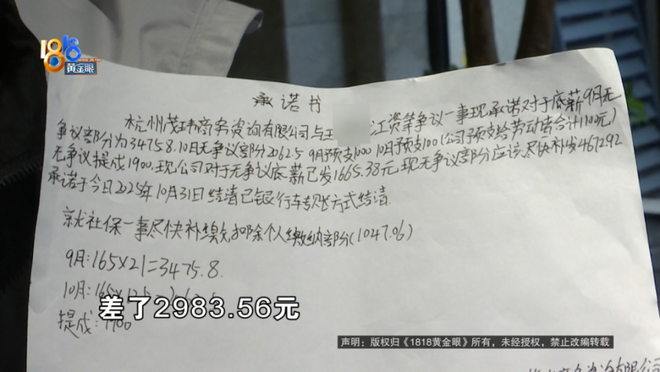 1818
黄金眼
承诺书
杭州茂玮商务咨询有限公司与王 江资等争议一事现承诺对于底薪9月无
争议部分为3475.8.10月无争议部分2062.5 9月预支100 10月预支100(公司预支给劳动者合计1100元)
无争议提成1900.现公司对于无争议底薪已发1665.38元.现无争议部分应该尽快补发4672.92
承诺于今日2025年10月31日结清已银行卡 方式结清.
就社保一事尽快补缴扣除个人缴纳部分(1047.06)
9月:165×21=3475.8.
10月:165×12.5
提成:1900
差了2983.56元
声明:版权归《1818黄金眼》所有,未经授权,禁止改编转载
有限公司